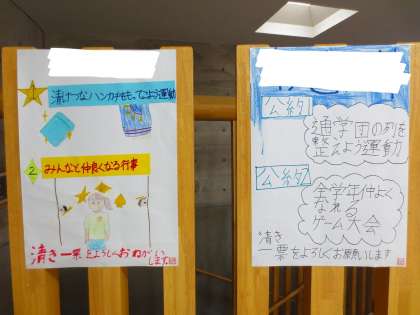 1
清けつなハンカチをもってよう運動
2
みんなと仲良くなる行事
清き一票をよろしくおねがい
します。
公約
通学団の列を
整えよう運動
公約
全学年仲よく
なれる
ゲーム大会
清き
一票をよろしくお願いします